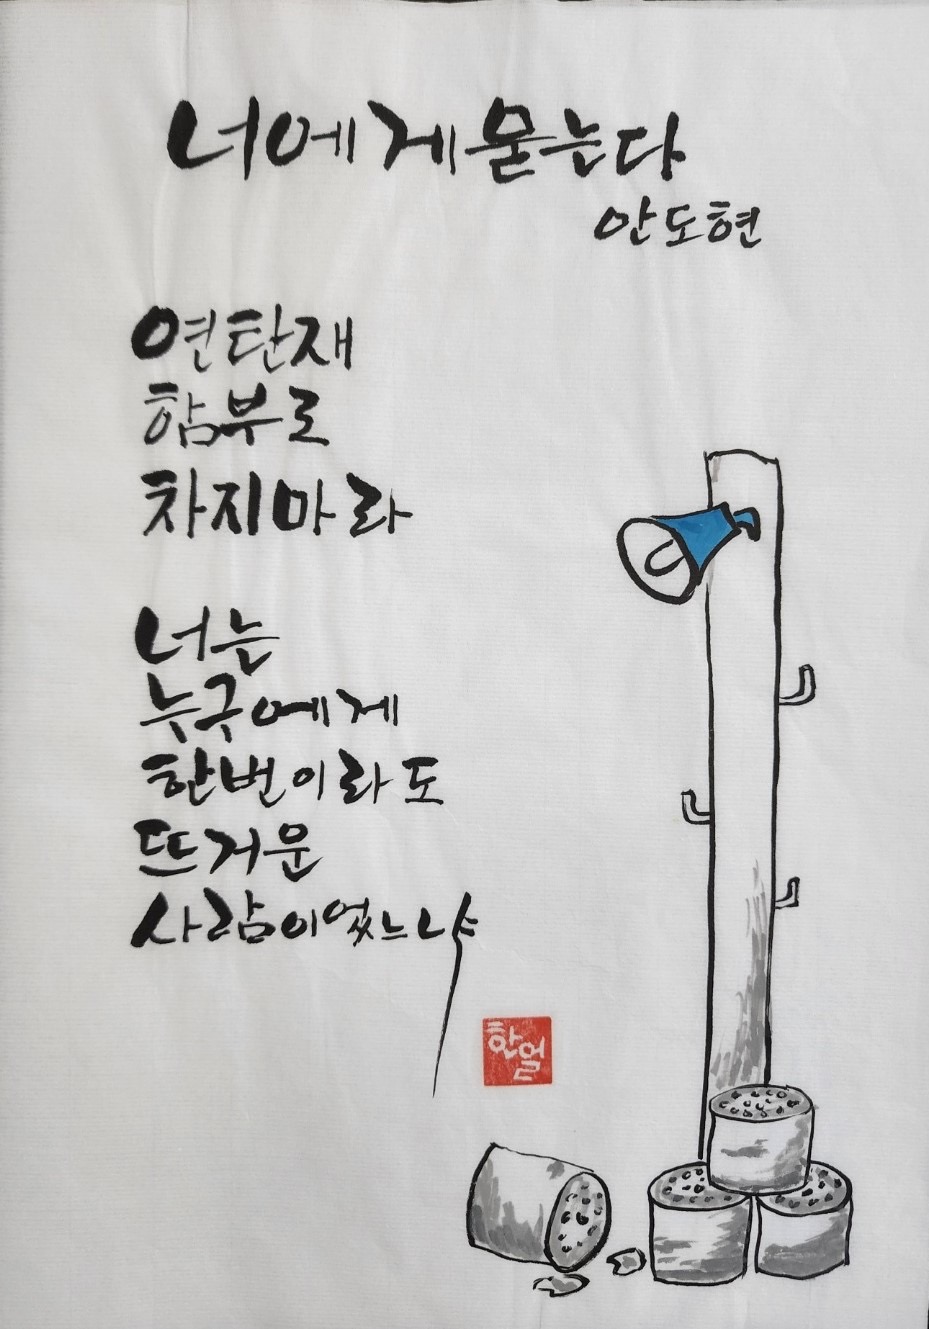 너에게 묻는다
안도현
연탄재
함부로
차지마라
너는
누구에게
한번이라도
뜨거운
사람이었느냐
한얼